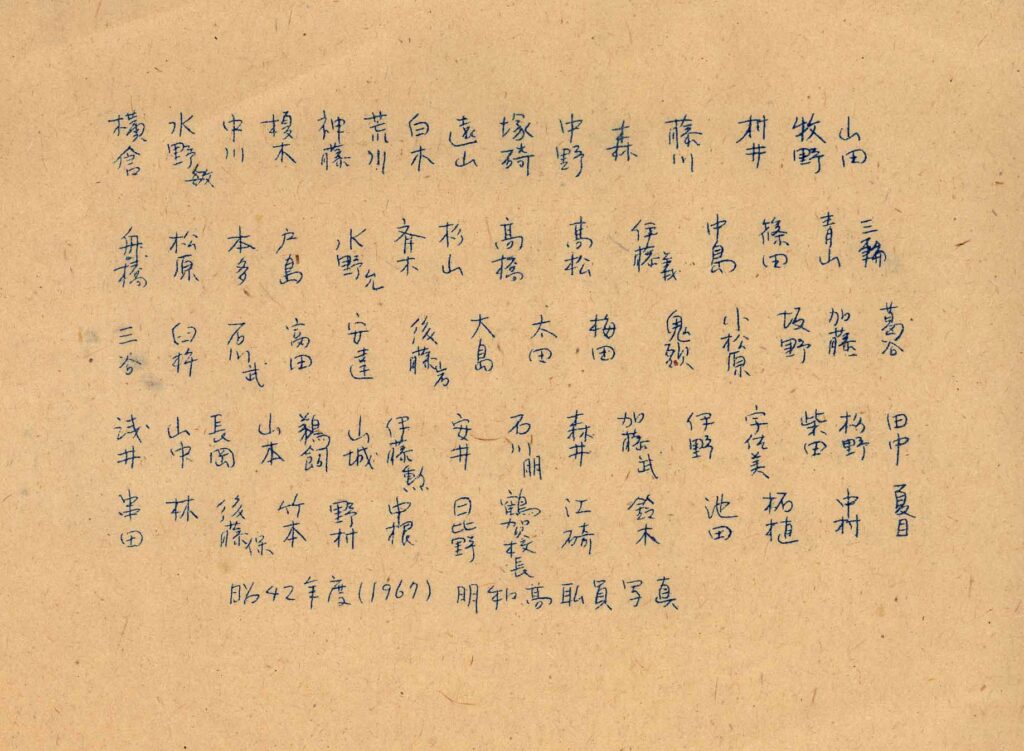 横倉 水野敏 中川 榎木 神藤 荒川 白木 遠山 塚碕 中野 森 藤川 村井 牧野 山田
舟橋 松原 本多 戸島 水野允 斉木 杉山 高橋 高松 伊藤義 中島 篠田 青山 三輪
三谷 臼杵 石川武 高田 安達 後藤岩 大島 太田 梅田 鬼頭 小松原 坂野 加藤 葛谷
浅井 山中 長岡 山本 鵜飼 山城 伊藤勲 安井 石川朋 森井 加藤武 伊野 宇佐美 柴田 杉野 田中
串田 林 後藤保 竹本 野村 中根 日比野 鶴賀校長 江碕 鈴木 池田 柘植 中村 夏目
昭42年度(1967) 明和高職員写真